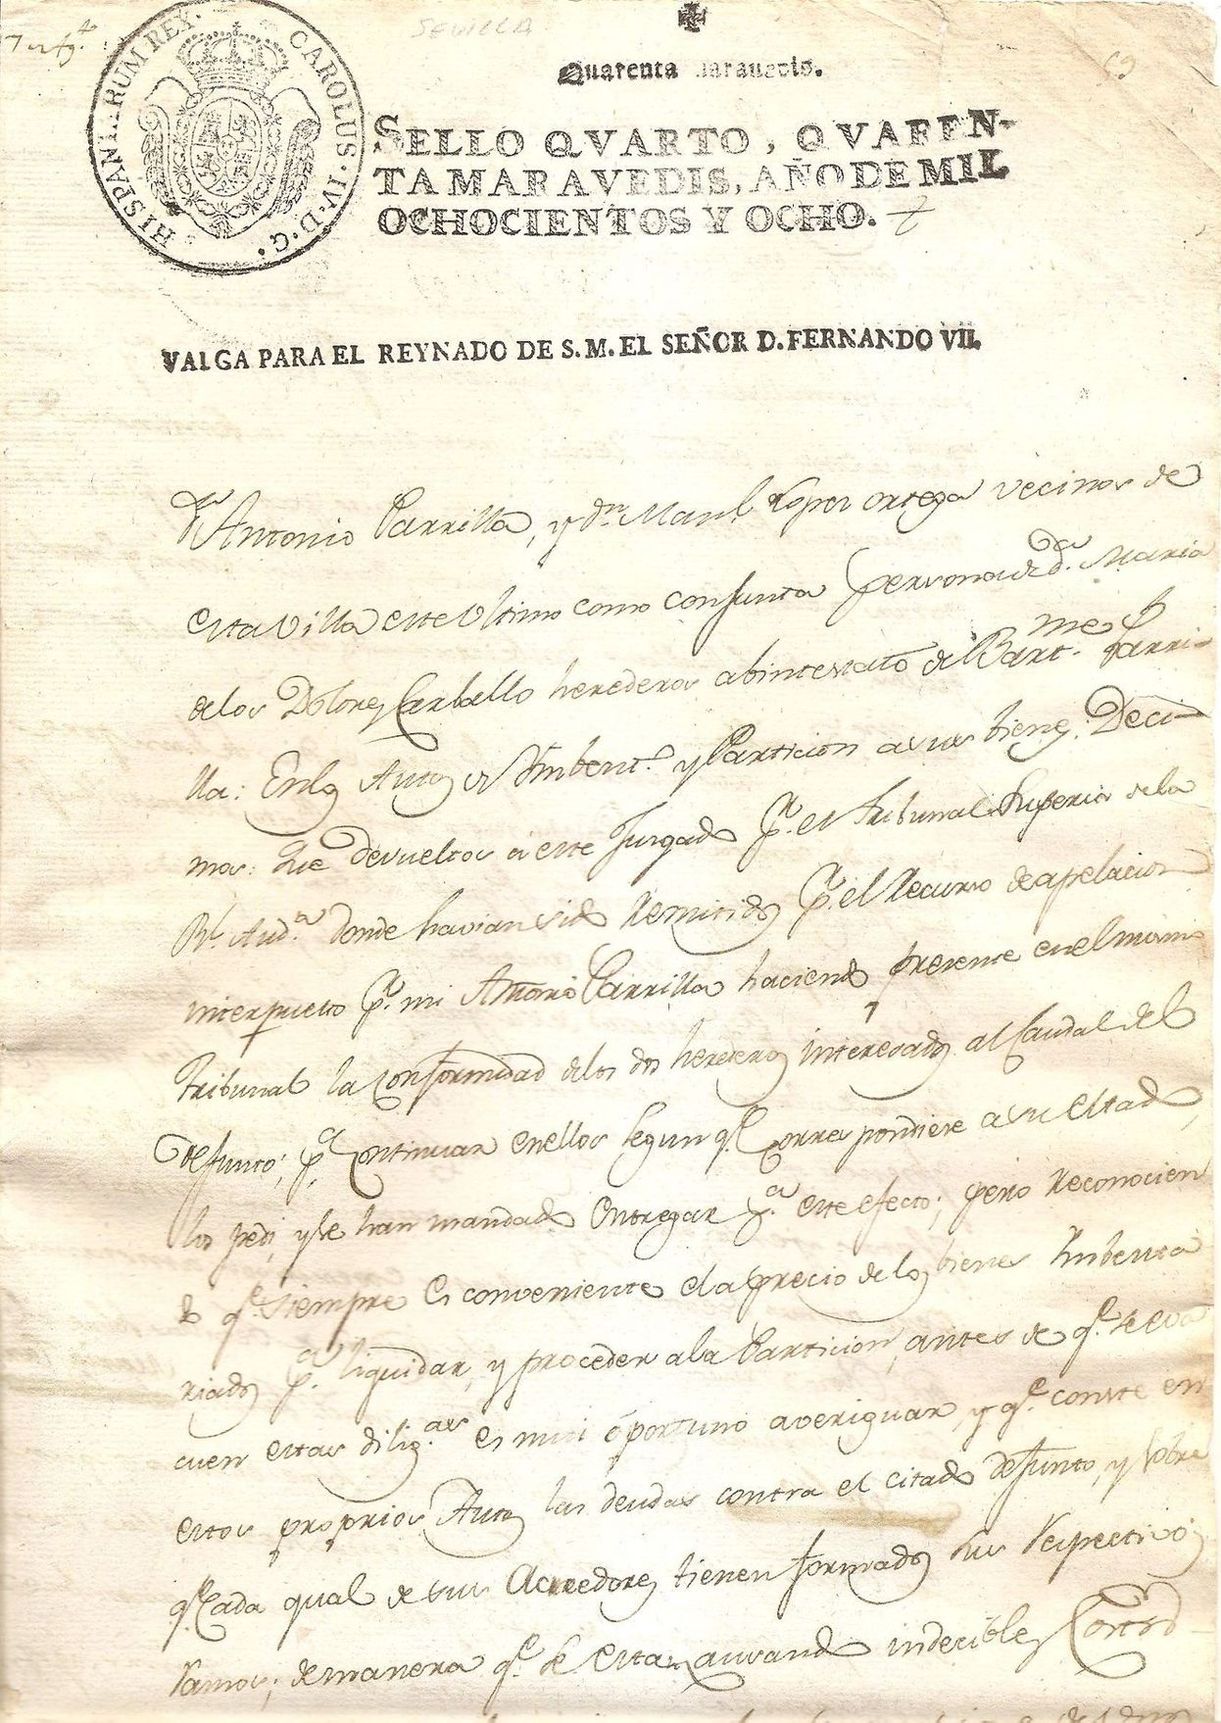 SEVILLA
69
Quarenta maravedis.
HISPANIARUM REX. CAROLUS. IV. D. G.
SELLO QVARTO, QVAREN-
TA MARAVEDIS, AÑO DE MIL
OCHOCIENTOS Y OCHO.
VALGA PARA EL REYNADO DE S. M. EL SEÑOR D. FERNANDO VII.
Dn. Antonio Parrilla, y dn. Manl. Lopez ortega vecinos de
esta villa este ultimo como conjunta persona de Da. Maria
delos Dolores Carballo herederos abintestato de Bartme. Parri-
lla: En los Autos de Imbento. y Particion a sus bienes: Deci-
mos: Que devueltos a este Juzgado pr. el Tribunal Superior dela
Rl. Auda. donde havian sido Remitidos pr. el Recurso de apelacion
interpuesto pr. mi Antonio Parrilla haciendo presente en el mismo
tribunal la conformidad delos dos herederos interesados al Caudal del
defunto; pa. continuar en ellos segun qe. corres pondiere a su estado,
los pedi, y se han mandado Entregar pa. este efecto; pero Reconocien
do qe. siempre es conveniente el aprecio de los bienes Imbenta
riados pa. liquidar, y proceder a la Particion, antes de qe. se eva
cuen estas diligas. es mui oportuno averiguar, y qe. conste en
estos proprios Autos las deudas contra el citado defunto, y sobre
qe. Cada qual de sus Acreedores tienen formados sus Respectivos
Ramos; de manera qe. se estan causando indecibles Costas